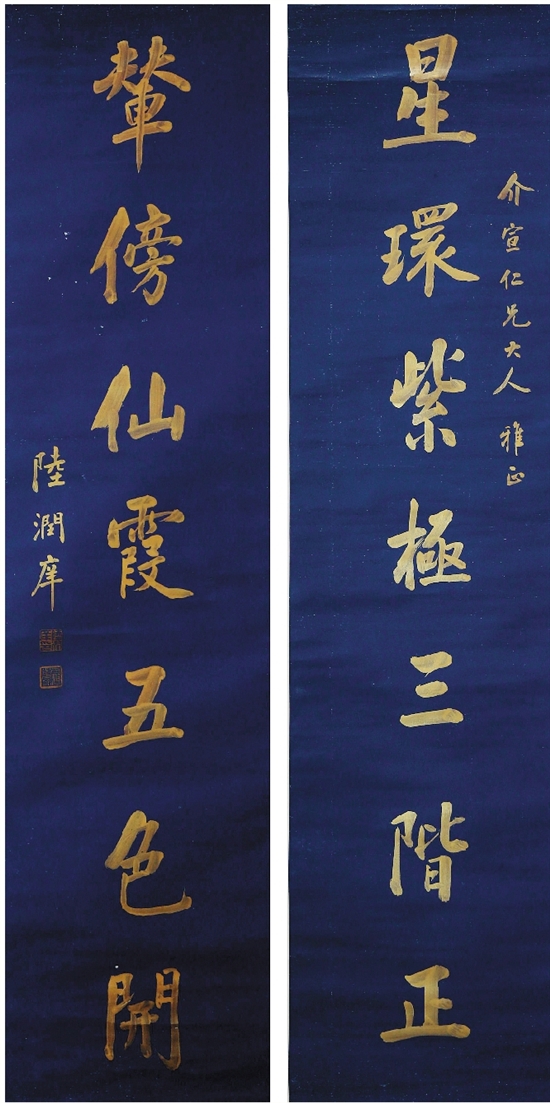 介宣仁兄大人雅正
星環紫極三階正
輦傍仙霞五色開
陸潤庠